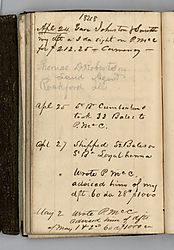 1848
Apl 24 Gave Johnston & 
my dft 3 ds sight on P. McC
for $212.25 = Currency —
Thomas D. Robertson
Land Agent
Rockford Ill
Apl 25 St Bt Cumberland
took 33 Bales to
P. McC.
Apl 27 Shipped 50 Bales on
St Bt Loyalhanna
" Wrote P. McC.
advised him of my
dft 60 ds 28th $1000
May 2 Wrote P. McC
advised him of dfts
of May 1 & 2d 60 $1000